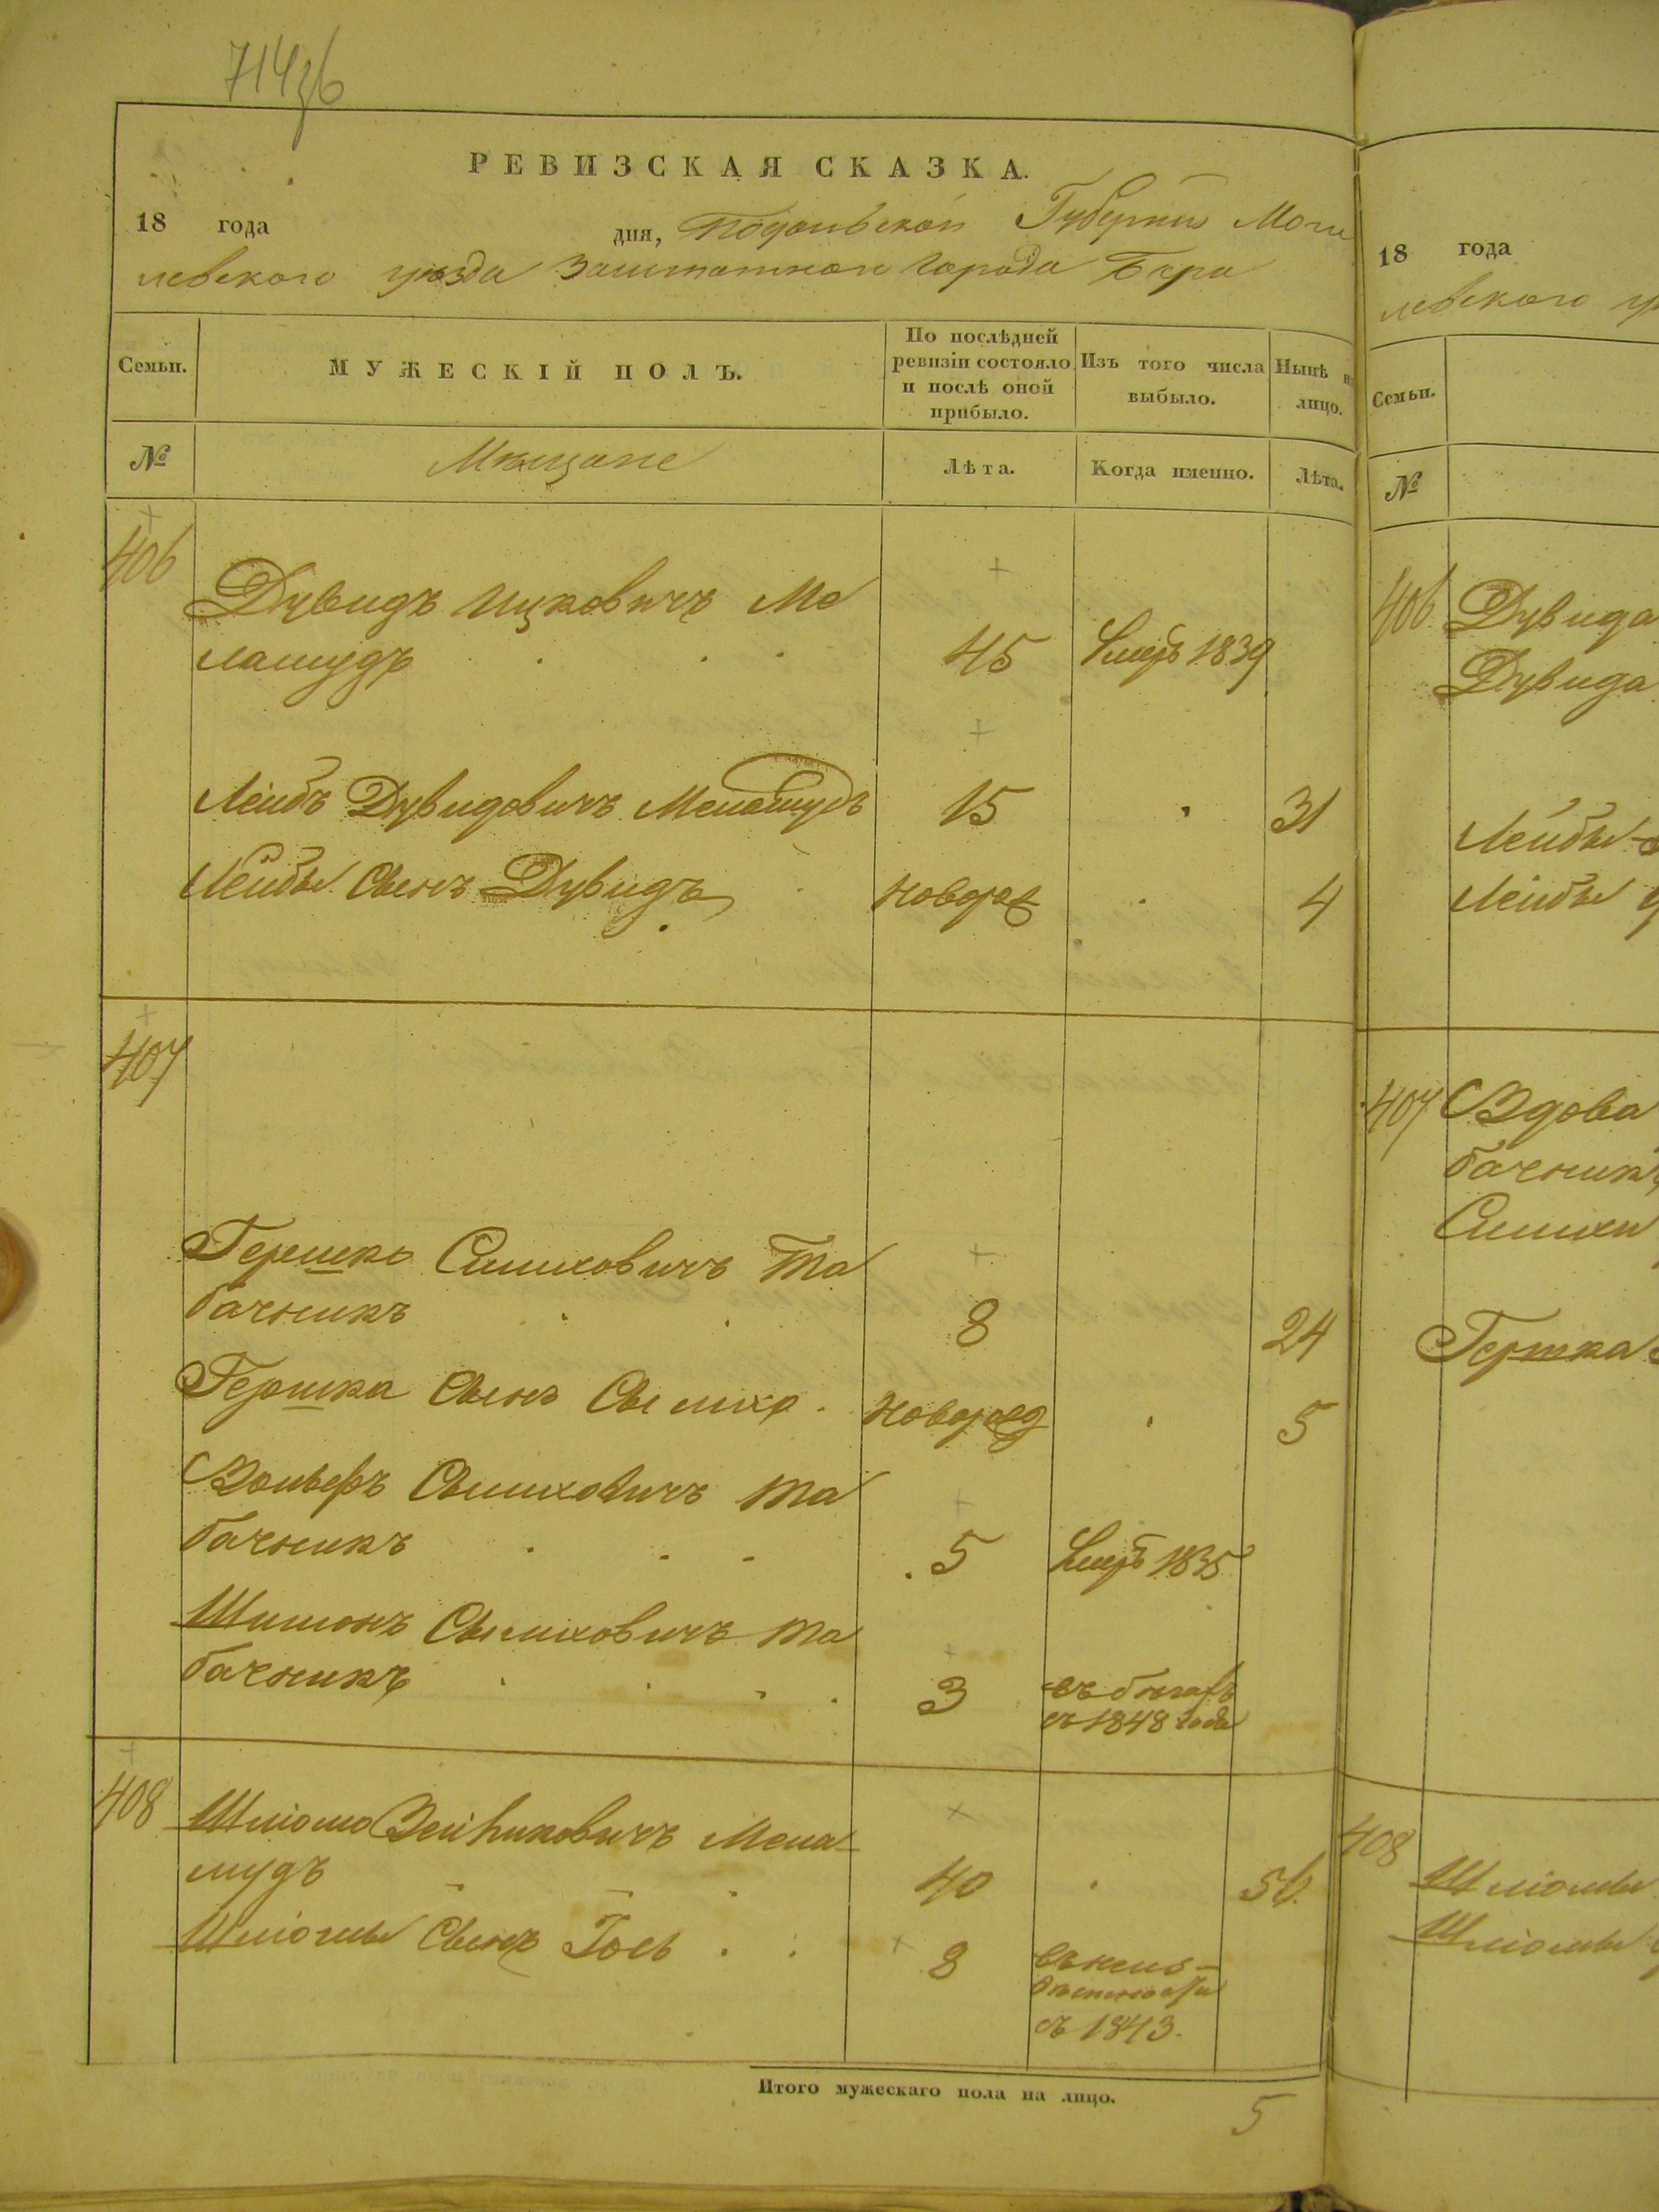 714 об
РЕВИЗСКАЯ СКАЗКА.
18 года дня, Подольской Губернии Моги
левского уезда заштатного города Бара
Семьи.
МУЖЕСКІЙ ПОЛЪ.
По послѣдней
ревизіи состояло
и послѣ оной
прибыло.
Изъ того числа
выбыло.
Нынѣ на
лицо.
№
Мѣщане
Лѣта.
Когда именно.
Лѣта.
406
Дувидъ Ицковичъ Ме
ламудъ 45 Умеръ 1839
Лейбъ Дувидовичъ Меламудъ 15 31
Лейбы Сынъ Дувидъ новорож 4
407
Гершко Симховичъ Та
бачникъ 8 24
Гершка Сынъ Сымхо новорожд 5
Вольфъ Сымховичъ Та
бачникъ 5 Умеръ 1835
Шимонъ Сымховичъ Та
бачникъ 3 въ бѣгахъ
съ 1848 года
408
Шліомо Зейликовичъ Мела-
мудъ 40 56
Шліомы Сынъ Іось 8 въ неиз-
вѣстности
съ 1843.
Итого мужескаго пола на лицо.
5
18 года
левского
Семьи.
№
406 Дувида
Дувида
Лейбы
Лейбы
407 Вдова
бачникъ
Симхи
Гершка
408
Шліомы
Шліомы